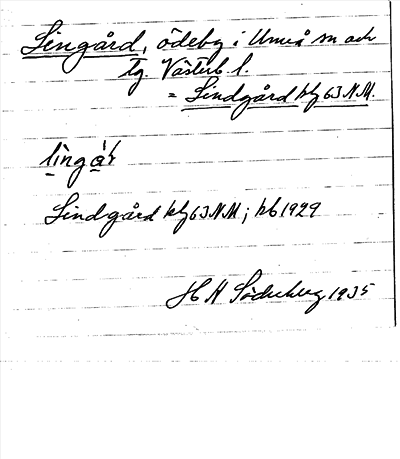 Lingård, ödeby i Umeå sn och
tg. Västerb. l.
= Lindgård blg 63 N.M.
lìngá̀r
Lindgård blg 63 N.M; kb 1929
H A Söderberg 1935